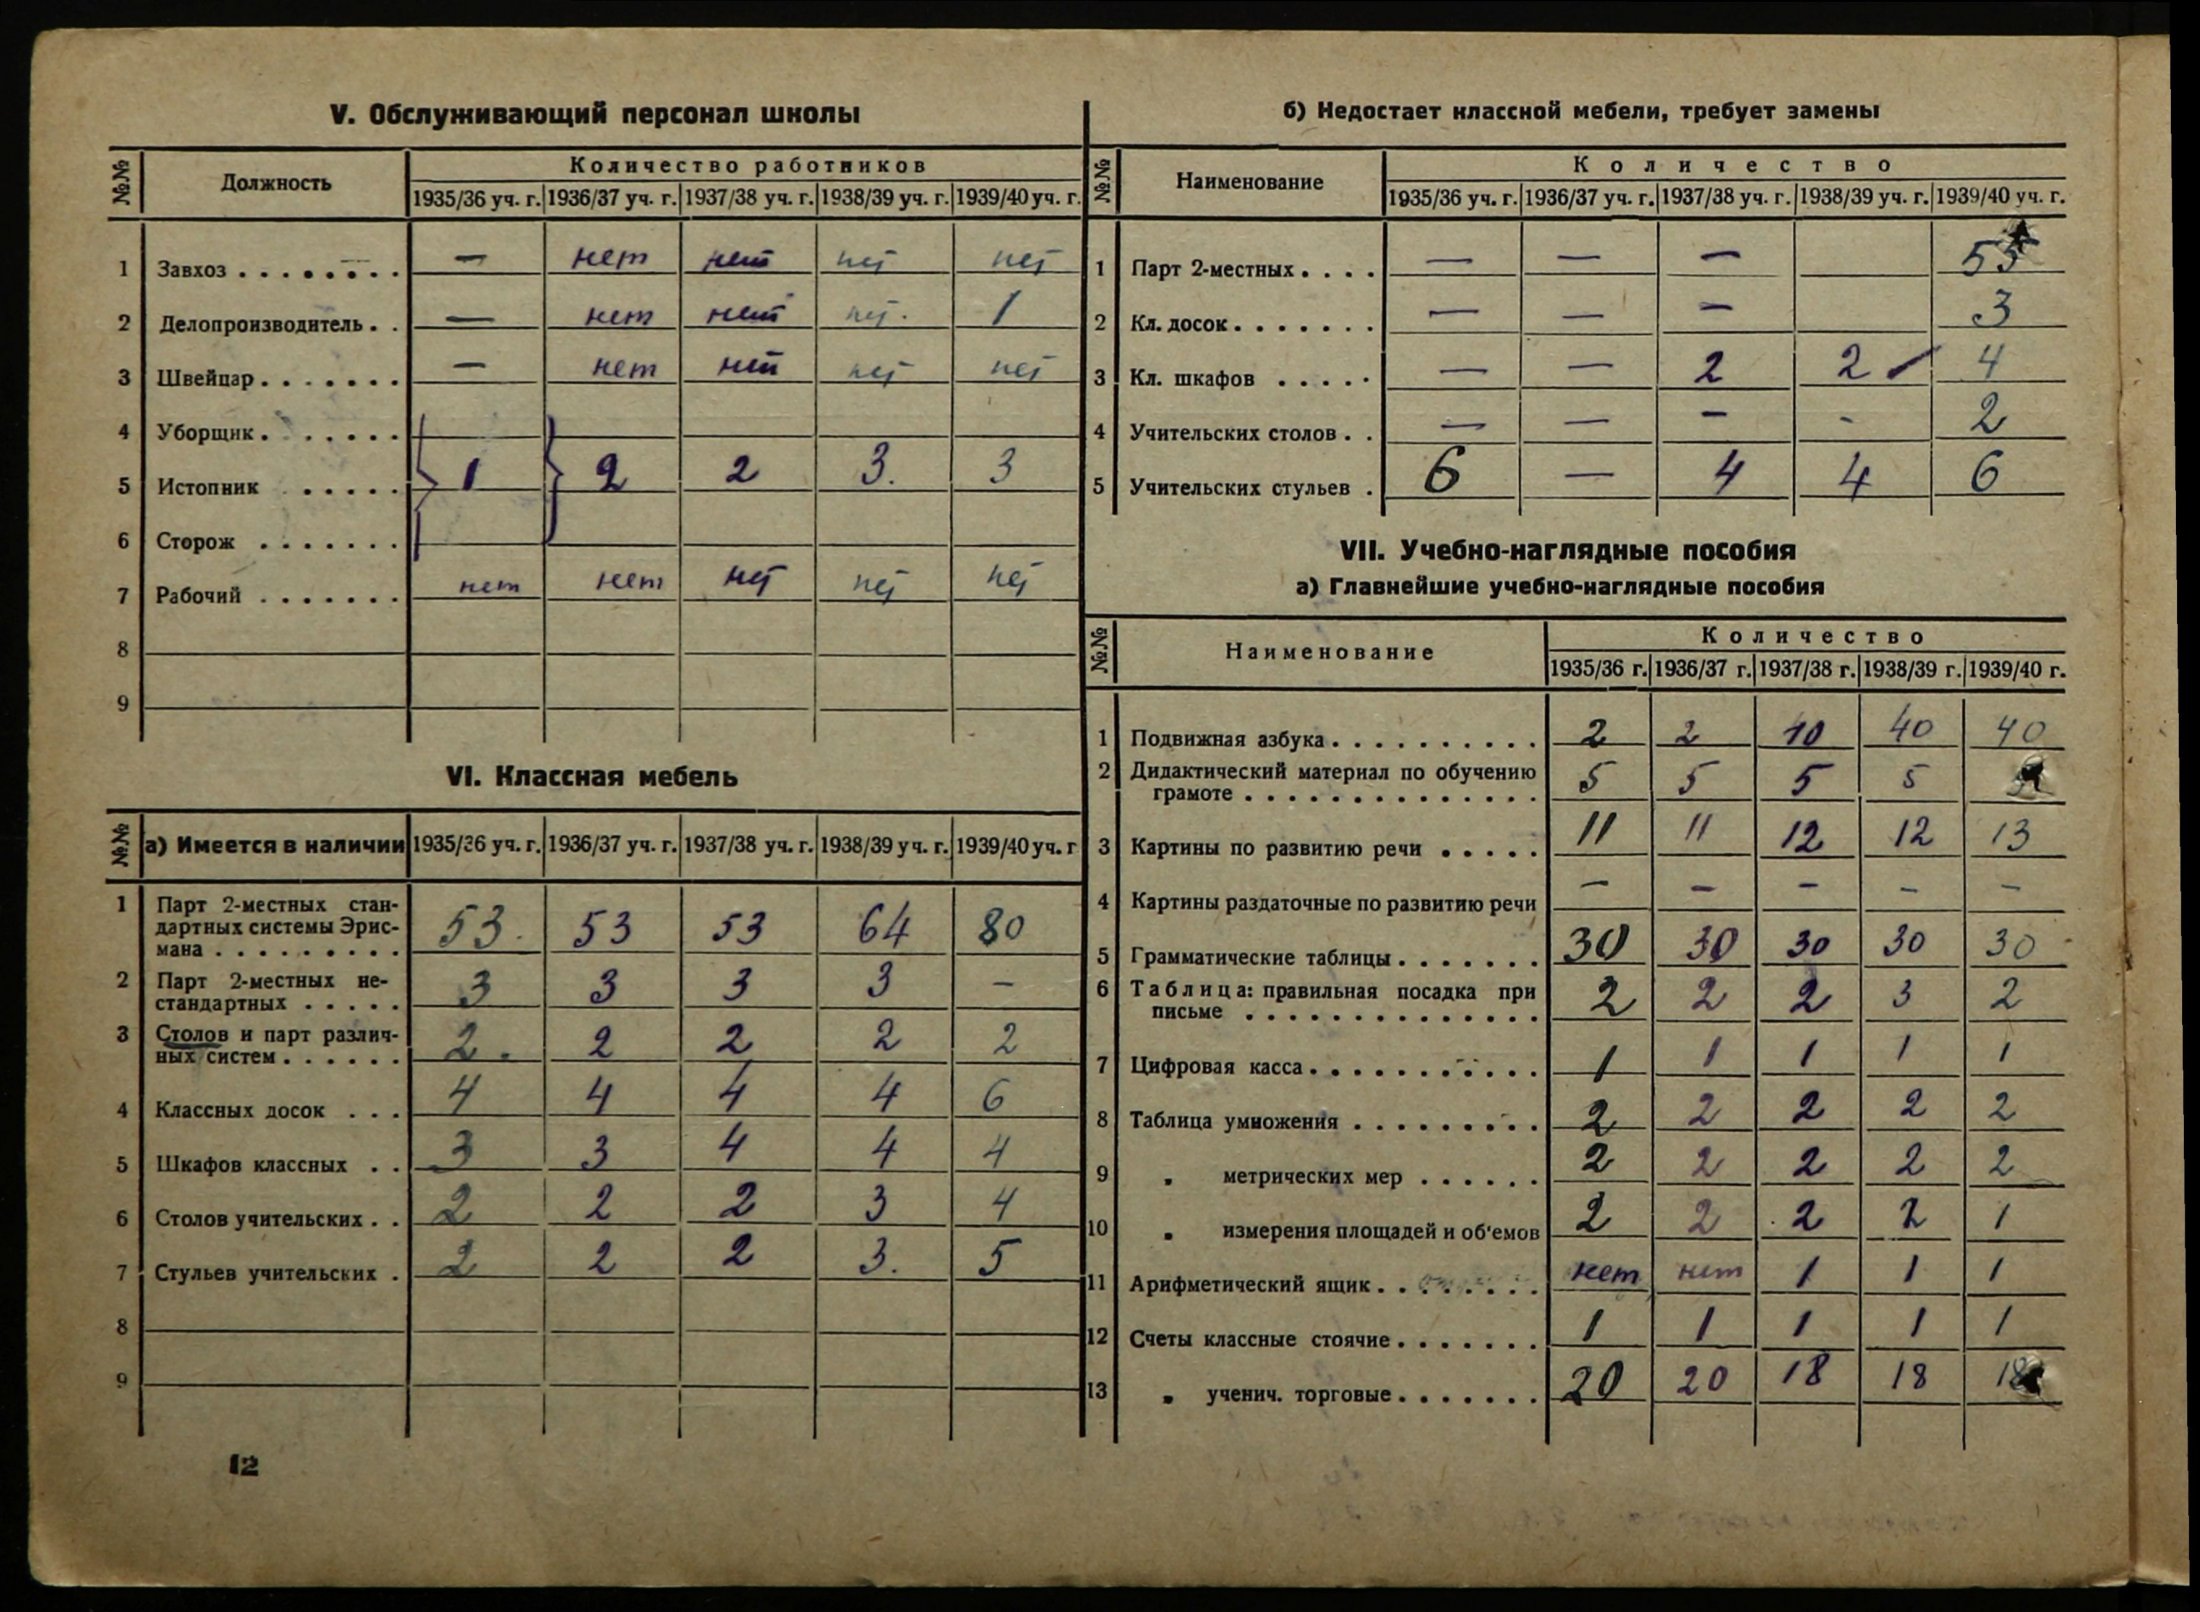 V. Обслуживающий персонал школы
№№ Должность Количество работников
1935/36 уч. г. 1936/37 уч. г. 1937/38 уч. г. 1938/39 уч. г. 1939/40 уч. г.
1 Завхоз . . . . . . . . — нет нет нет нет
2 Делопроизводитель . . — нет нет нет. 1
3 Швейцар . . . . . . . — нет нет нет нет
4 Уборщик . . . . . . .
5 Истопник . . . . . 1 2 2 3. 3
6 Сторож . . . . . . .
7 Рабочий . . . . . . . нет нет нет нет нет
8
9
VI. Классная мебель
№№ а) Имеется в наличии 1935/36 уч. г. 1936/37 уч. г. 1937/38 уч. г. 1938/39 уч. г. 1939/40 уч. г
1 Парт 2-местных стан-
дартных системы Эрис-
мана . . . . . . . . . 53. 53 53 64 80
2 Парт 2-местных не-
стандартных . . . . . 3 3 3 3 -
3 Столов и парт различ-
ных систем . . . . . . 2. 2 2 2 2
4 Классных досок . . . 4 4 4 4 6
5 Шкафов классных . . 3 3 4 4 4
6 Столов учительских . . 2 2 2 3 4
7 Стульев учительских . 2 2 2 3. 5
8
9
12
б) Недостает классной мебели, требует замены
№№ Наименование Количество
1935/36 уч. г. 1936/37 уч. г. 1937/38 уч. г. 1938/39 уч. г. 1939/40 уч. г.
1 Парт 2-местных . . . . — — — 55
2 Кл. досок . . . . . . . — — — 3
3 Кл. шкафов . . . . . — — 2 2 4
4 Учительских столов . . — — - - 2
5 Учительских стульев . 6 — 4 4 6
VII. Учебно-наглядные пособия
а) Главнейшие учебно-наглядные пособия
№№ Наименование Количество
1935/36 г. 1936/37 г. 1937/38 г. 1938/39 г. 1939/40 г.
1 Подвижная азбука . . . . . . . . . . 2 2 40 40
2 Дидактический материал по обучению
грамоте . . . . . . . . . . . . . . 5 5 5 5
3 Картины по развитию речи . . . . . 11 11 12 12 13
4 Картины раздаточные по развитию речи - - - - -
5 Грамматические таблицы . . . . . . . 30 30 30 30 30
6 Таблица: правильная посадка при
письме . . . . . . . . . . . . . . 2 2 2 3 2
7 Цифровая касса . . . . . . . . . . . 1 1 1 1 1
8 Таблица умножения . . . . . . . . . 2 2 2 2 2
9 „ метрических мер . . . . . . 2 2 2 2 2
10 „ измерения площадей и об'емов 2 2 2 2 1
11 Арифметический ящик . . . . . . . . нет нет 1 1 1
12 Счеты классные стоячие . . . . . . . 1 1 1 1 1
13 „ ученич. торговые . . . . . . . 20 20 18 18 18